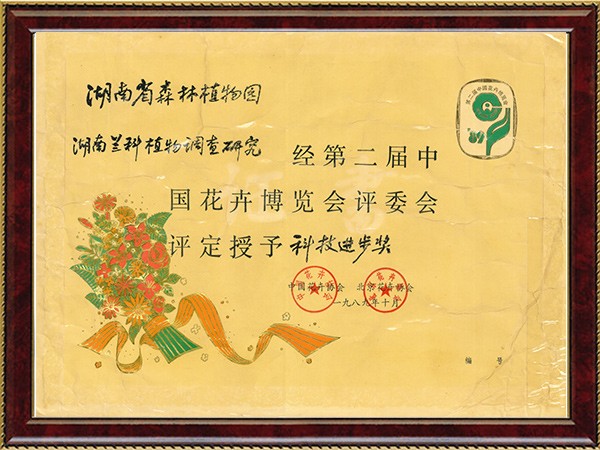 湖南省森林植物园
湖南兰科植物调查研究
经第二届中
国花卉博览会评委会
评定授予科技进步奖
中国花卉协会 北京花卉协会
一九八九年十月
编 号
第二届中国花卉博览会